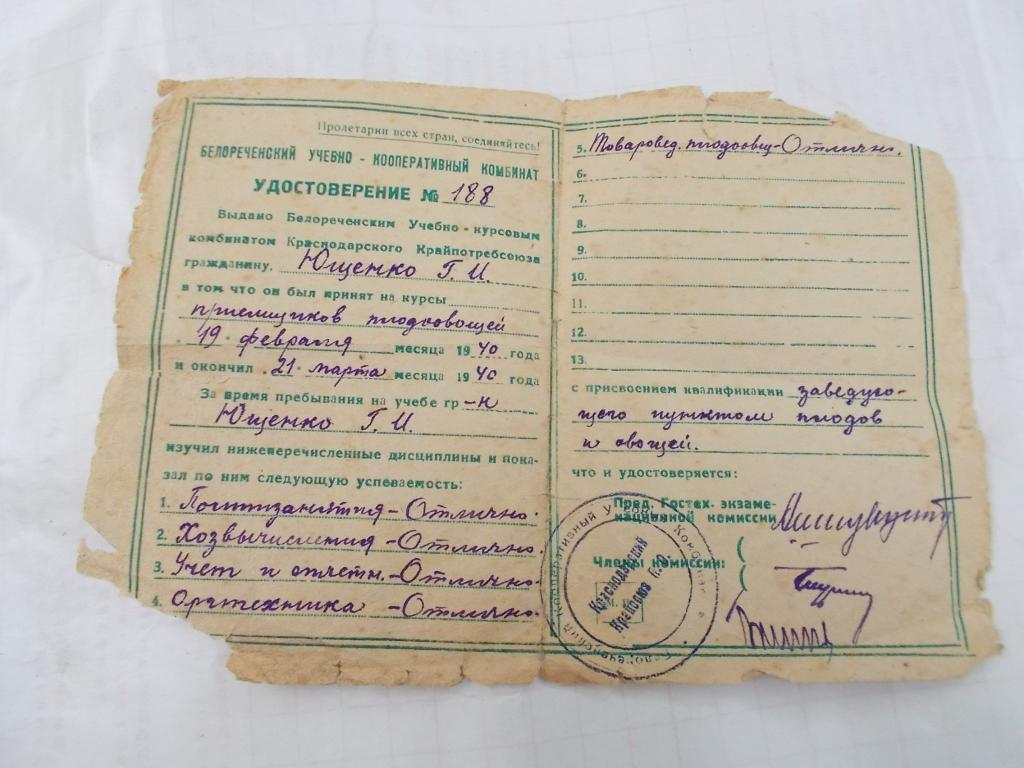 Пролетарии всех стран, соединяйтесь!
БЕЛОРЕЧЕНСКИЙ УЧЕБНО - КООПЕРАТИВНЫЙ КОМБИНАТ
УДОСТОВЕРЕНИЕ № 188
Выдано Белореченским Учебно-курсовым
комбинатом Краснодарского Крайпотребсоюза
гражданину, Ющенко Г. И.
в том что он был принят на курсы
приемщиков плодоовощей
19 февраля месяца 1940 года
и окончил 21 марта месяца 1940 года
За время пребывания на учебе гр-н
Ющенко Г. И.
изучил нижеперечисленные дисциплины и пока-
зал по ним следующую успеваемость:
1. Политзанятия - Отлично.
2. Хозвычисления - Отлично.
3. Учет и отчетн. - Отлично.
4. Оргтехника - Отлично.
5. Товаровед. плодоовощ - Отлично.
6.
7.
8.
9.
10.
11.
12.
13.
с присвоением квалификации заведую-
щего пунктом плодов
и овощей.
что и удостоверяется:
Пред. Гостех. экзаме-
национной комиссии
Члены комиссии:
Краснодарский
Крайсоюз П. О.